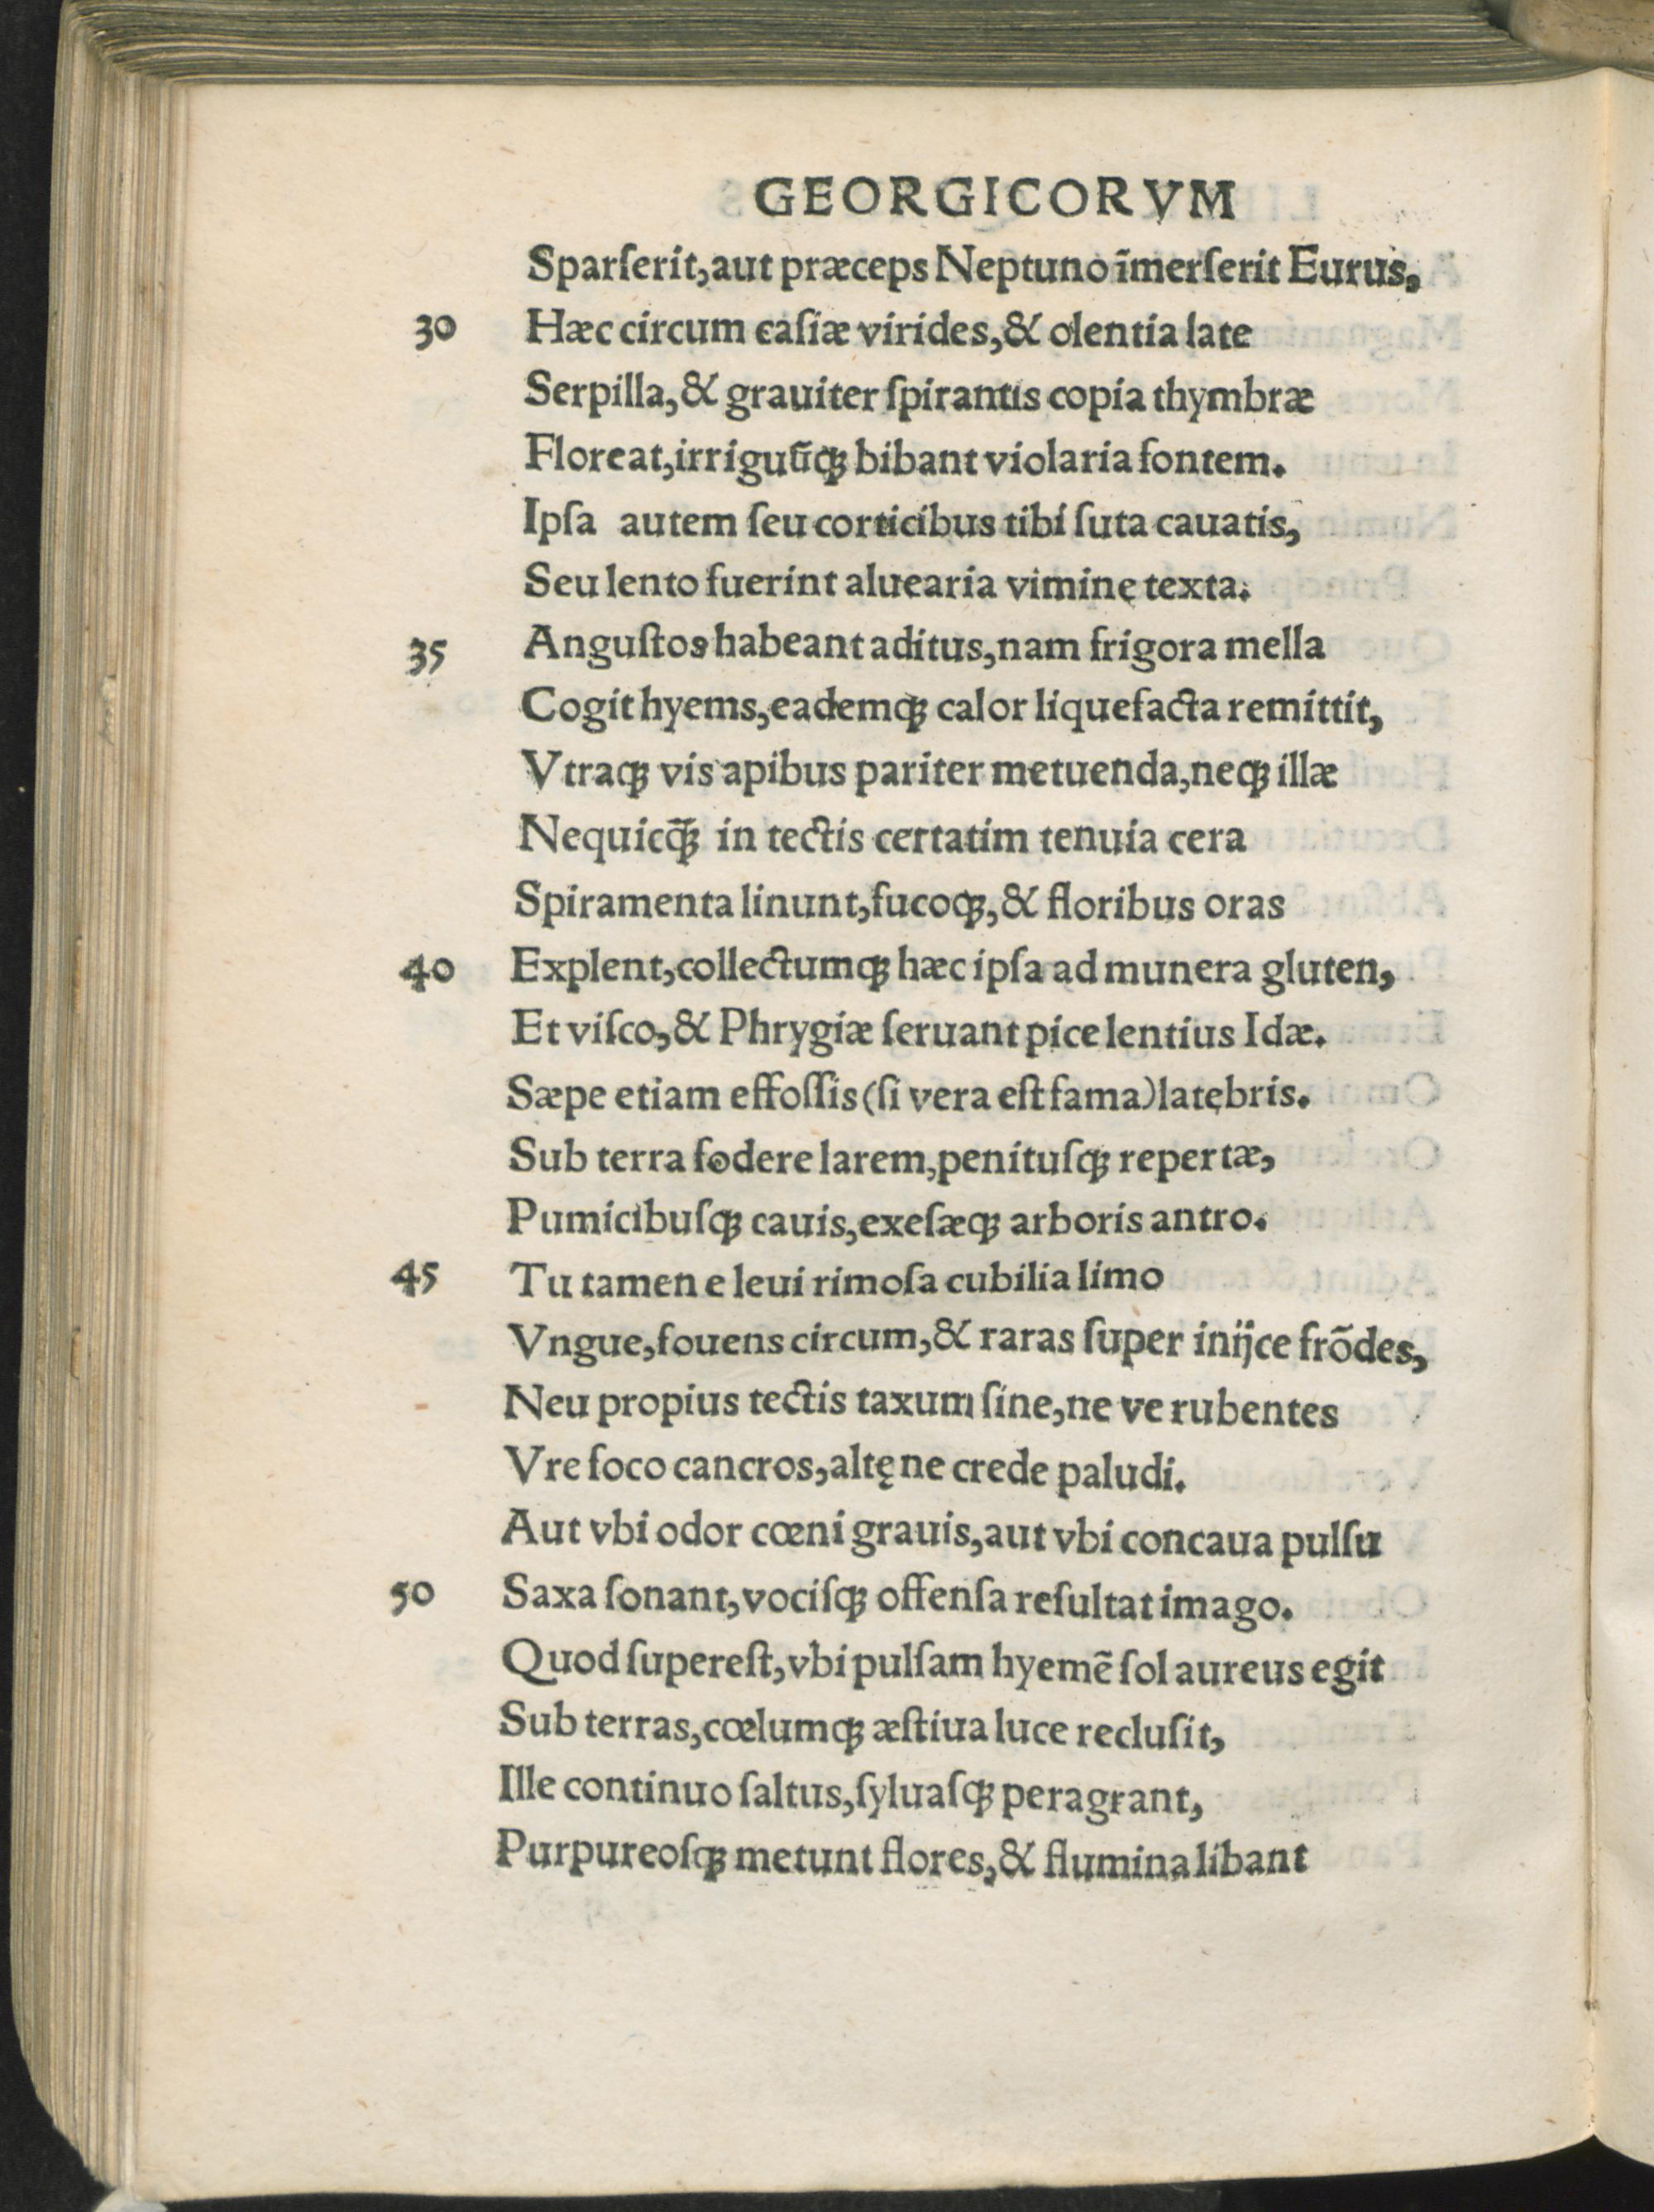 GEORGICORVM
Sparſerit, aut præceps Neptuno ĩmerſerit Eurus,
30 Hæc circum caſiæ virides, & olentia late
Serpilla, & grauiter ſpirantis copia thymbræ
Floreat, irriguũꝗ bibant violaria fontem.
Ipſa autem ſeu corticibus tibi ſuta cauatis,
Seu lento fuerint aluearia viminę texta.
35 Anguſtos habeant aditus, nam frigora mella
Cogit hyems, eademꝗ calor liquefacta remittit,
Vtraꝗ vis apibus pariter metuenda, neꝗ illæ
Nequicꝗ̃ in tectis certatim tenuia cera
Spiramenta linunt, fucoꝗ, & floribus oras
40 Explent, collectumꝗ hæc ipſa ad munera gluten,
Et viſco, & Phrygiæ ſeruant pice lentius Idæ.
Sæpe etiam effoſſis (ſi vera eſt fama) latębris.
Sub terra fodere larem, penituſꝗ repertæ,
Pumicibuſꝗ cauis, exeſæꝗ arboris antro.
45 Tu tamen e leui rimoſa cubilia limo
Vngue, fouens circum, & raras ſuper inĳce frõdes,
Neu propius tectis taxum ſine, ne ve rubentes
Vre foco cancros, altę ne crede paludi.
Aut vbi odor cœni grauis, aut vbi concaua pulſu
50 Saxa ſonant, vociſꝗ offenſa reſultat imago.
Quod ſupereſt, vbi pulſam hyemẽ ſol aureus egit
Sub terras, cœlumꝗ æſtiua luce recluſit,
Ille continuo ſaltus, ſyluaſꝗ peragrant,
Purpureoſꝗ metunt flores, & flumina libant